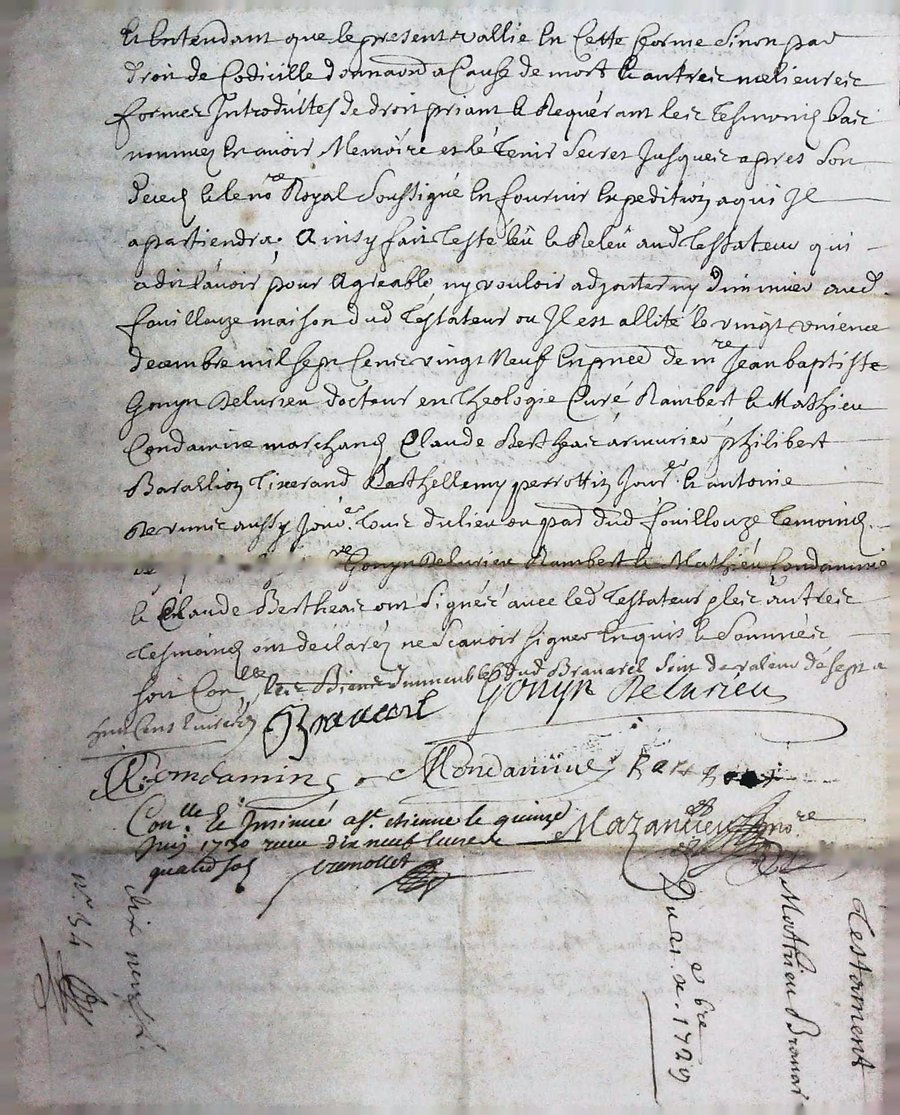 Et Entendant que le present vallie En Cette forme Sinon par
droit de Codicille donnaon a Cause de mort Et autres melieures
formes Introduites de droit priant Et Requérant les tesmoins bas
nommés En avoir Memoire et le tenir Secret Jusques apres Son
deces Et le nore Royal Soussigné En fournir Expedition a qui Il
apartiendra. Ainsy fait testé lëu Et Relëu aud testateur qui
a dit lavoir pour Agreable ny vouloir adjouter ny diminuer aud.
fouillouze maison dud testateur ou Il est allité le vingt unieme
decembre mil sept Cens vingt Neuf En pnce de mre Jean baptiste
Gonyn Delurieu docteur en Theologie Curé Rambert Et Mathieu
Condamine marchands Claude Bertheas armurier philibert
Barallion tixerand Barthellemy perrottin Jour.er Et antoine
aussy Jour.er tous du lieu ou par dud fouillouze temoins.
re Gonyn Delurieu Rambert Et Mathieu Condamine
Et Claude Bertheas ont Signés avec led testateur Et les autres
tesmoins ont déclarés ne Scavoir Signer Enquis Et Sommés
Soit Conlle les Biens Immeubles dud Bravard Sont de valeur de sept a
huit Cent livres
Bravard Gonyn Delurieu
R Condamine M Condamine
Conlle Et Insinué a St. etienne le quinze
1730 receu dix neuf livres
quatre sols
Mazancieu nore
n.° 34
dix neuf
Du 21. xbre 1729
Mathieu Bravard
Testament